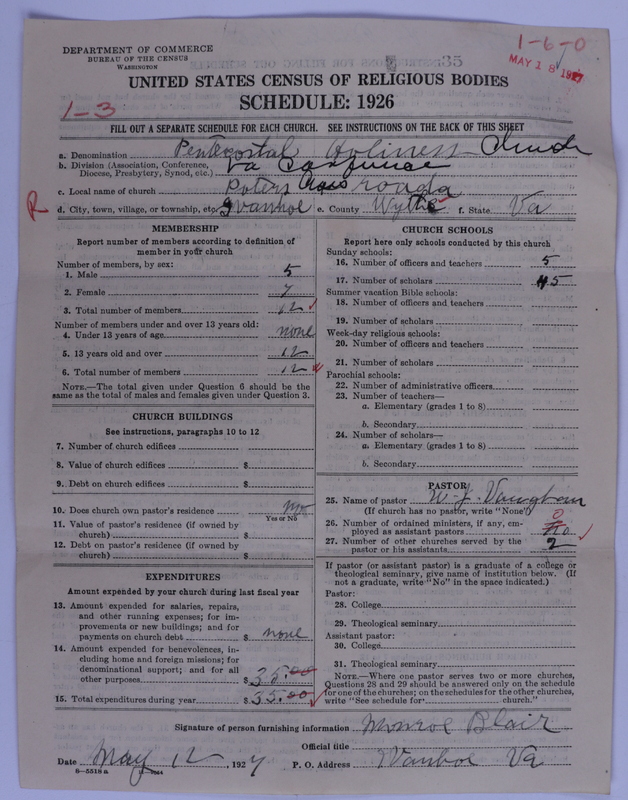 DEPARTMENT OF COMMERCE
BUREAU OF THE CENSUS
WASHINGTON
1-6-0
35
MAY 18 1927
UNITED STATES CENSUS OF RELIGIOUS BODIES
1-3
SCHEDULE: 1926
FILL OUT A SEPARATE SCHEDULE FOR EACH CHURCH. SEE INSTRUCTIONS ON THE BACK OF THIS SHEET
a. Denomination Pentecostal Holiness Church
b. Division (Association, Conference, Diocese, Presbytery, Synod, etc.) Va
c. Local name of church Poters Cross roads
R
d. City, town, village, or township, etc. Ivanhoe e. County Wythe f. State Va
MEMBERSHIP
Report number of members according to definition of
member in your church
Number of members, by sex:
1. Male 5
2. Female 7
3. Total number of members 12
Number of members under and over 13 years old:
4. Under 13 years of age none
5. 13 years old and over 12
6. Total number of members 12
NOTE.—The total given under Question 6 should be the
same as the total of males and females given under Question 3.
CHURCH BUILDINGS
See instructions, paragraphs 10 to 12
7. Number of church edifices
8. Value of church edifices $
9. Debt on church edifices $
10. Does church own pastor's residence no
Yes or No
11. Value of pastor's residence (if owned by
church) $
12. Debt on pastor's residence (if owned by
church) $
EXPENDITURES
Amount expended by your church during last fiscal year
13. Amount expended for salaries, repairs,
and other running expenses; for im-
provements or new buildings; and for
payments on church debt $ none
14. Amount expended for benevolences, in-
cluding home and foreign missions; for
denominational support; and for all
other purposes $ 35.00
15. Total expenditures during year $ 35.00
CHURCH SCHOOLS
Report here only schools conducted by this church
Sunday schools:
16. Number of officers and teachers 5
17. Number of scholars 45
Summer vacation Bible schools:
18. Number of officers and teachers
19. Number of scholars
Week-day religious schools:
20. Number of officers and teachers
21. Number of scholars
Parochial schools:
22. Number of administrative officers
23. Number of teachers—
a. Elementary (grades 1 to 8)
b. Secondary
24. Number of scholars—
a. Elementary (grades 1 to 8)
b. Secondary
PASTOR
25. Name of pastor W. J. Vaughan
(If church has no pastor, write "None")
26. Number of ordained ministers, if any, em-
ployed as assistant pastors no 0
27. Number of other churches served by the
pastor or his assistants 2
If pastor (or assistant pastor) is a graduate of a college or
theological seminary, give name of institution below. (If
not a graduate, write "No" in the space indicated.)
Pastor:
28. College
29. Theological seminary
Assistant pastor:
30. College
31. Theological seminary
NOTE.—Where one pastor serves two or more churches,
Questions 28 and 29 should be answered only on the schedule
for one of the churches; on the schedules for the other churches,
write "See schedule for church."
Signature of person furnishing information Monroe Blair
Official title
Date May 12, 1927 P. O. Address Ivanhoe Va
8—5518 a